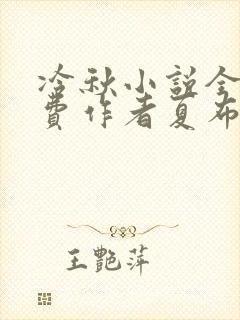 冷秋小説全
費作者夏布
王艷萍